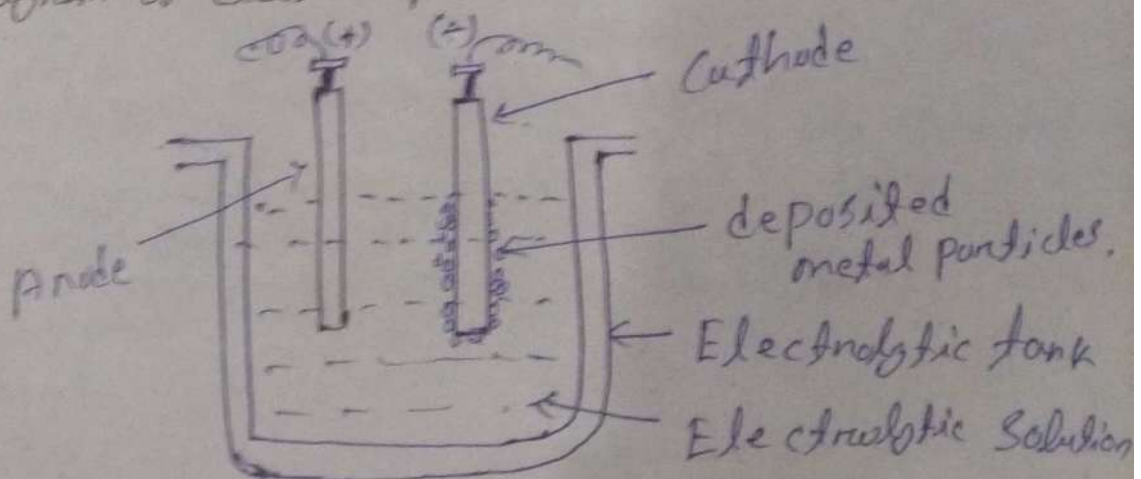 (+) (-)
Cathode
deposited
metal particles.
Anode
Electrolytic tank
Electrolytic Solution